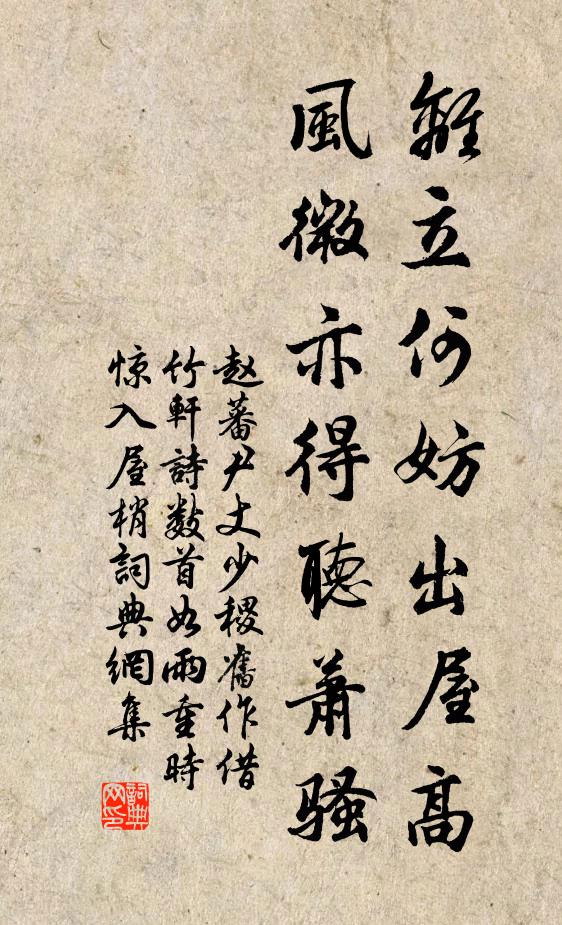 離立何妨出屋高
風微亦得聽蕭騷
赵蕃尹丈少稷舊作借
竹軒詩数首如雨重時
惊入屋梢詞典網集
詞典网印